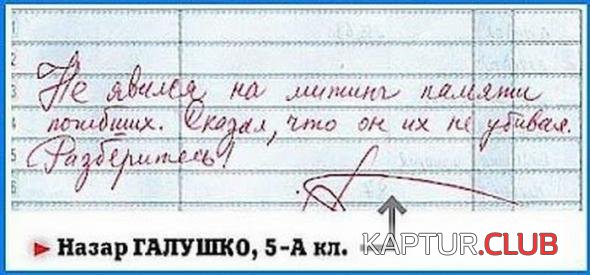 Не явился на митинг памяти
погибших. Сказал, что он их не убивал.
Разберитесь!
► Назар ГАЛУШКО, 5-А кл.
KAPTUR.CLUB